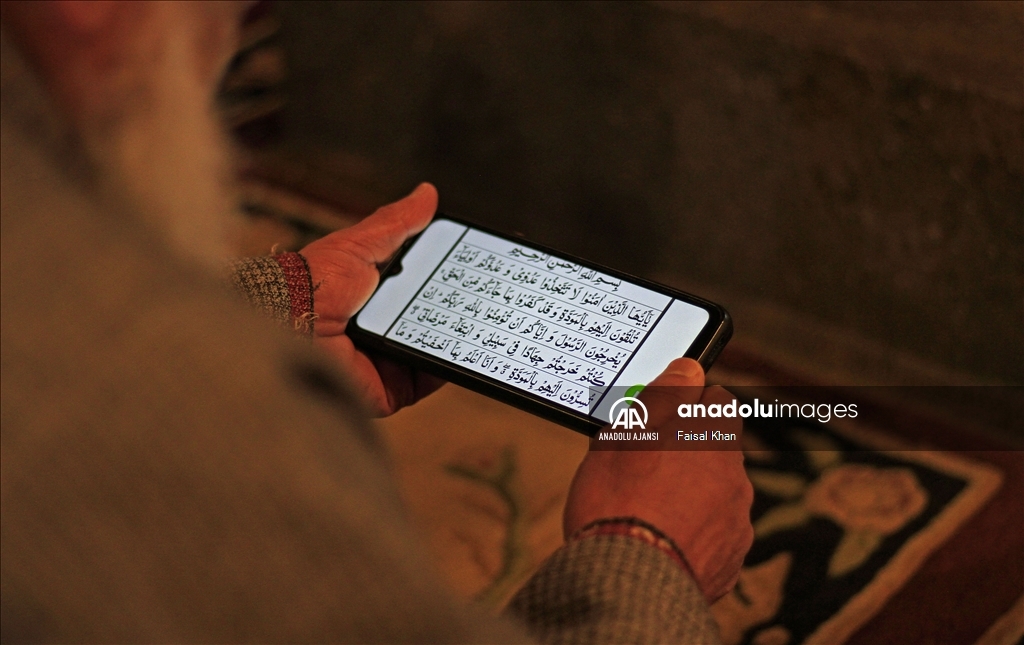 بِسْمِ اللّٰهِ الرَّحْمٰنِ الرَّحِيْمِ
يٰٓاَيُّهَا الَّذِيْنَ اٰمَنُوْا لَا تَتَّخِذُوْا عَدُوِّيْ وَ عَدُوَّكُمْ اَوْلِيَآءَ
تُلْقُوْنَ اِلَيْهِمْ بِالْمَوَدَّةِ وَ قَدْ كَفَرُوْا بِمَا جَآءَكُمْ مِّنَ الْحَقِّ
يُخْرِجُوْنَ الرَّسُوْلَ وَ اِيَّاكُمْ اَنْ تُؤْمِنُوْا بِاللّٰهِ رَبِّكُمْ اِنْ
كُنْتُمْ خَرَجْتُمْ جِهَادًا فِيْ سَبِيْلِيْ وَ ابْتِغَآءَ مَرْضَاتِيْ
تُسِرُّوْنَ اِلَيْهِمْ بِالْمَوَدَّةِ وَ اَنَا اَعْلَمُ بِمَآ اَخْفَيْتُمْ وَ مَآ
AA
ANADOLU AJANSI
anadoluimages
Faisal Khan